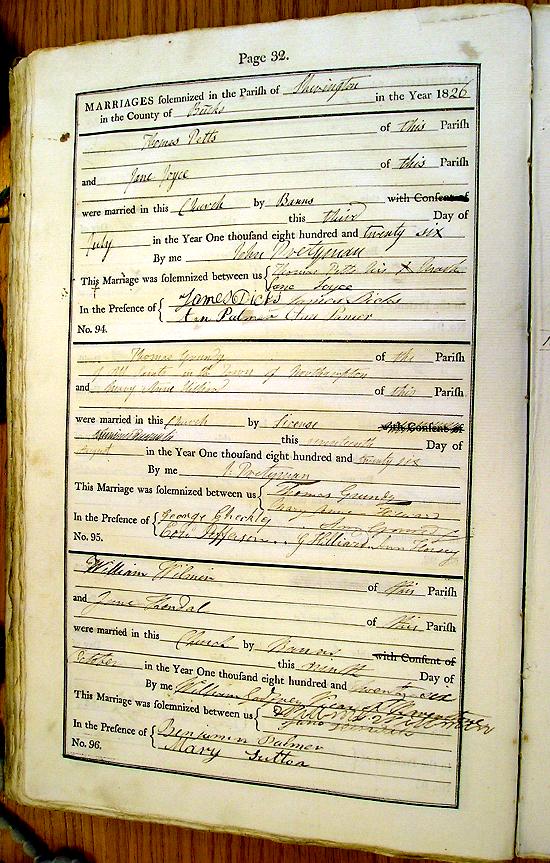 Page 32.
MARRIAGES solemnized in the Parish of Sherington
in the County of Bucks in the Year 1826
Thomas Petts of this Parish
and Jane Joyce of this Parish
were married in this Church by Banns with Consent of
this third Day of
July in the Year One thousand eight hundred and twenty six
By me John Pretyman
This Marriage was solemnized between us Thomas Petts his X
Jane Joyce
In the Presence of James Dicks James Dicks
Ann Palmer Ann
No. 94.
Thomas Grundy of the Parish
of in the Town of Northampton
and Mary Anne Hilliard of this Parish
were married in this Church by License with Consent of
this seventeenth Day of
August in the Year One thousand eight hundred and twenty six
By me J. Pretyman
This Marriage was solemnized between us Thomas Grundy
Mary Anne Hilliard
In the Presence of George Ann Grundy
No. 95. Jefferson G Hilliard Ann
William of this Parish
and Jane of this Parish
were married in this Church by Banns with Consent of
this ninth Day of
October in the Year One thousand eight hundred and twenty six
By me William
This Marriage was solemnized between us
Jane
In the Presence of Benjamin Palmer
No. 96. Mary Sutton